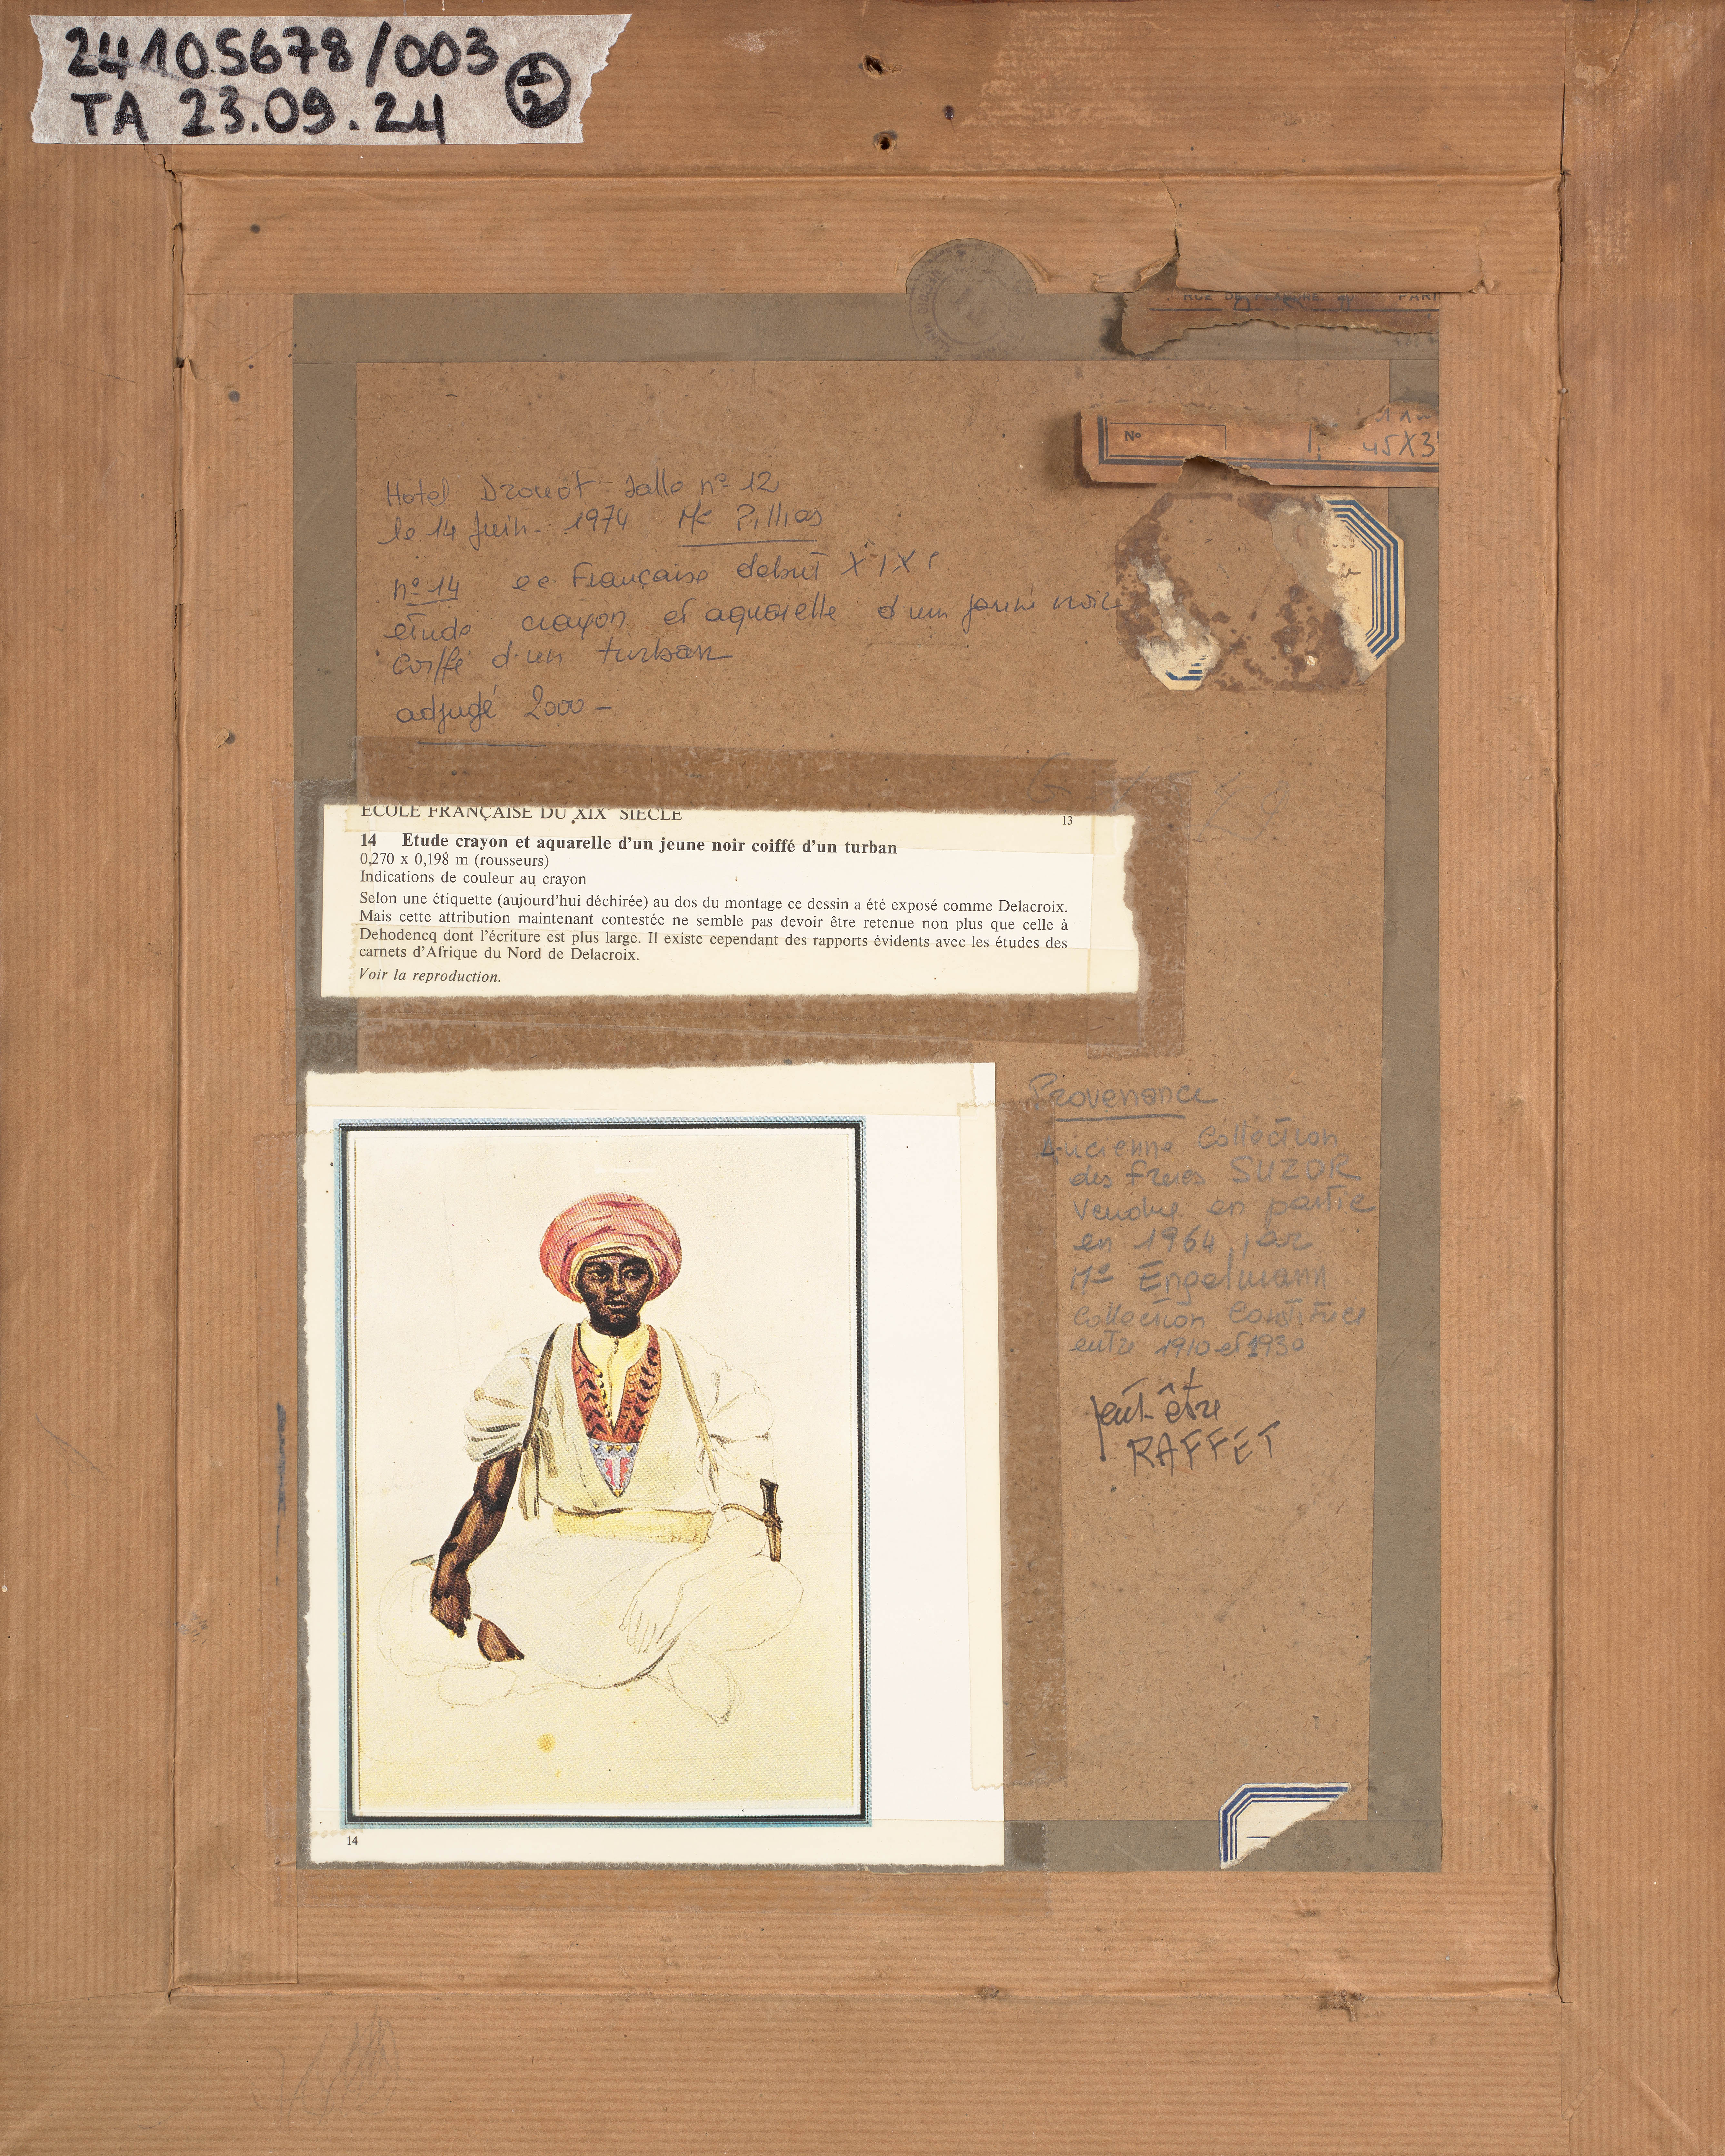 24105678/003
TA 23.09.24
RUE DE PARI
45X3
N°
Hotel Drouot Salle n° 12
le 14 Juin 1974 Me Pillias
n° 14 ec Française debut XIXe
étude crayon et aquarelle d'un jeune noir
coiffé d'un turban
adjugé 2000 -
ECOLE FRANÇAISE DU XIXe SIECLE
13
14 Etude crayon et aquarelle d'un jeune noir coiffé d'un turban
0,270 x 0,198 m (rousseurs)
Indications de couleur au crayon
Selon une étiquette (aujourd'hui déchirée) au dos du montage ce dessin a été exposé comme Delacroix.
Mais cette attribution maintenant contestée ne semble pas devoir être retenue non plus que celle à
Dehodencq dont l'écriture est plus large. Il existe cependant des rapports évidents avec les études des
carnets d'Afrique du Nord de Delacroix.
Voir la reproduction.
Provenance
Ancienne Collection
des freres SUZOR
Vendue en partie
en 1964 par
Me Engelmann
Collection Constituée
entre 1910 et 1930
peut-être
RAFFET
14